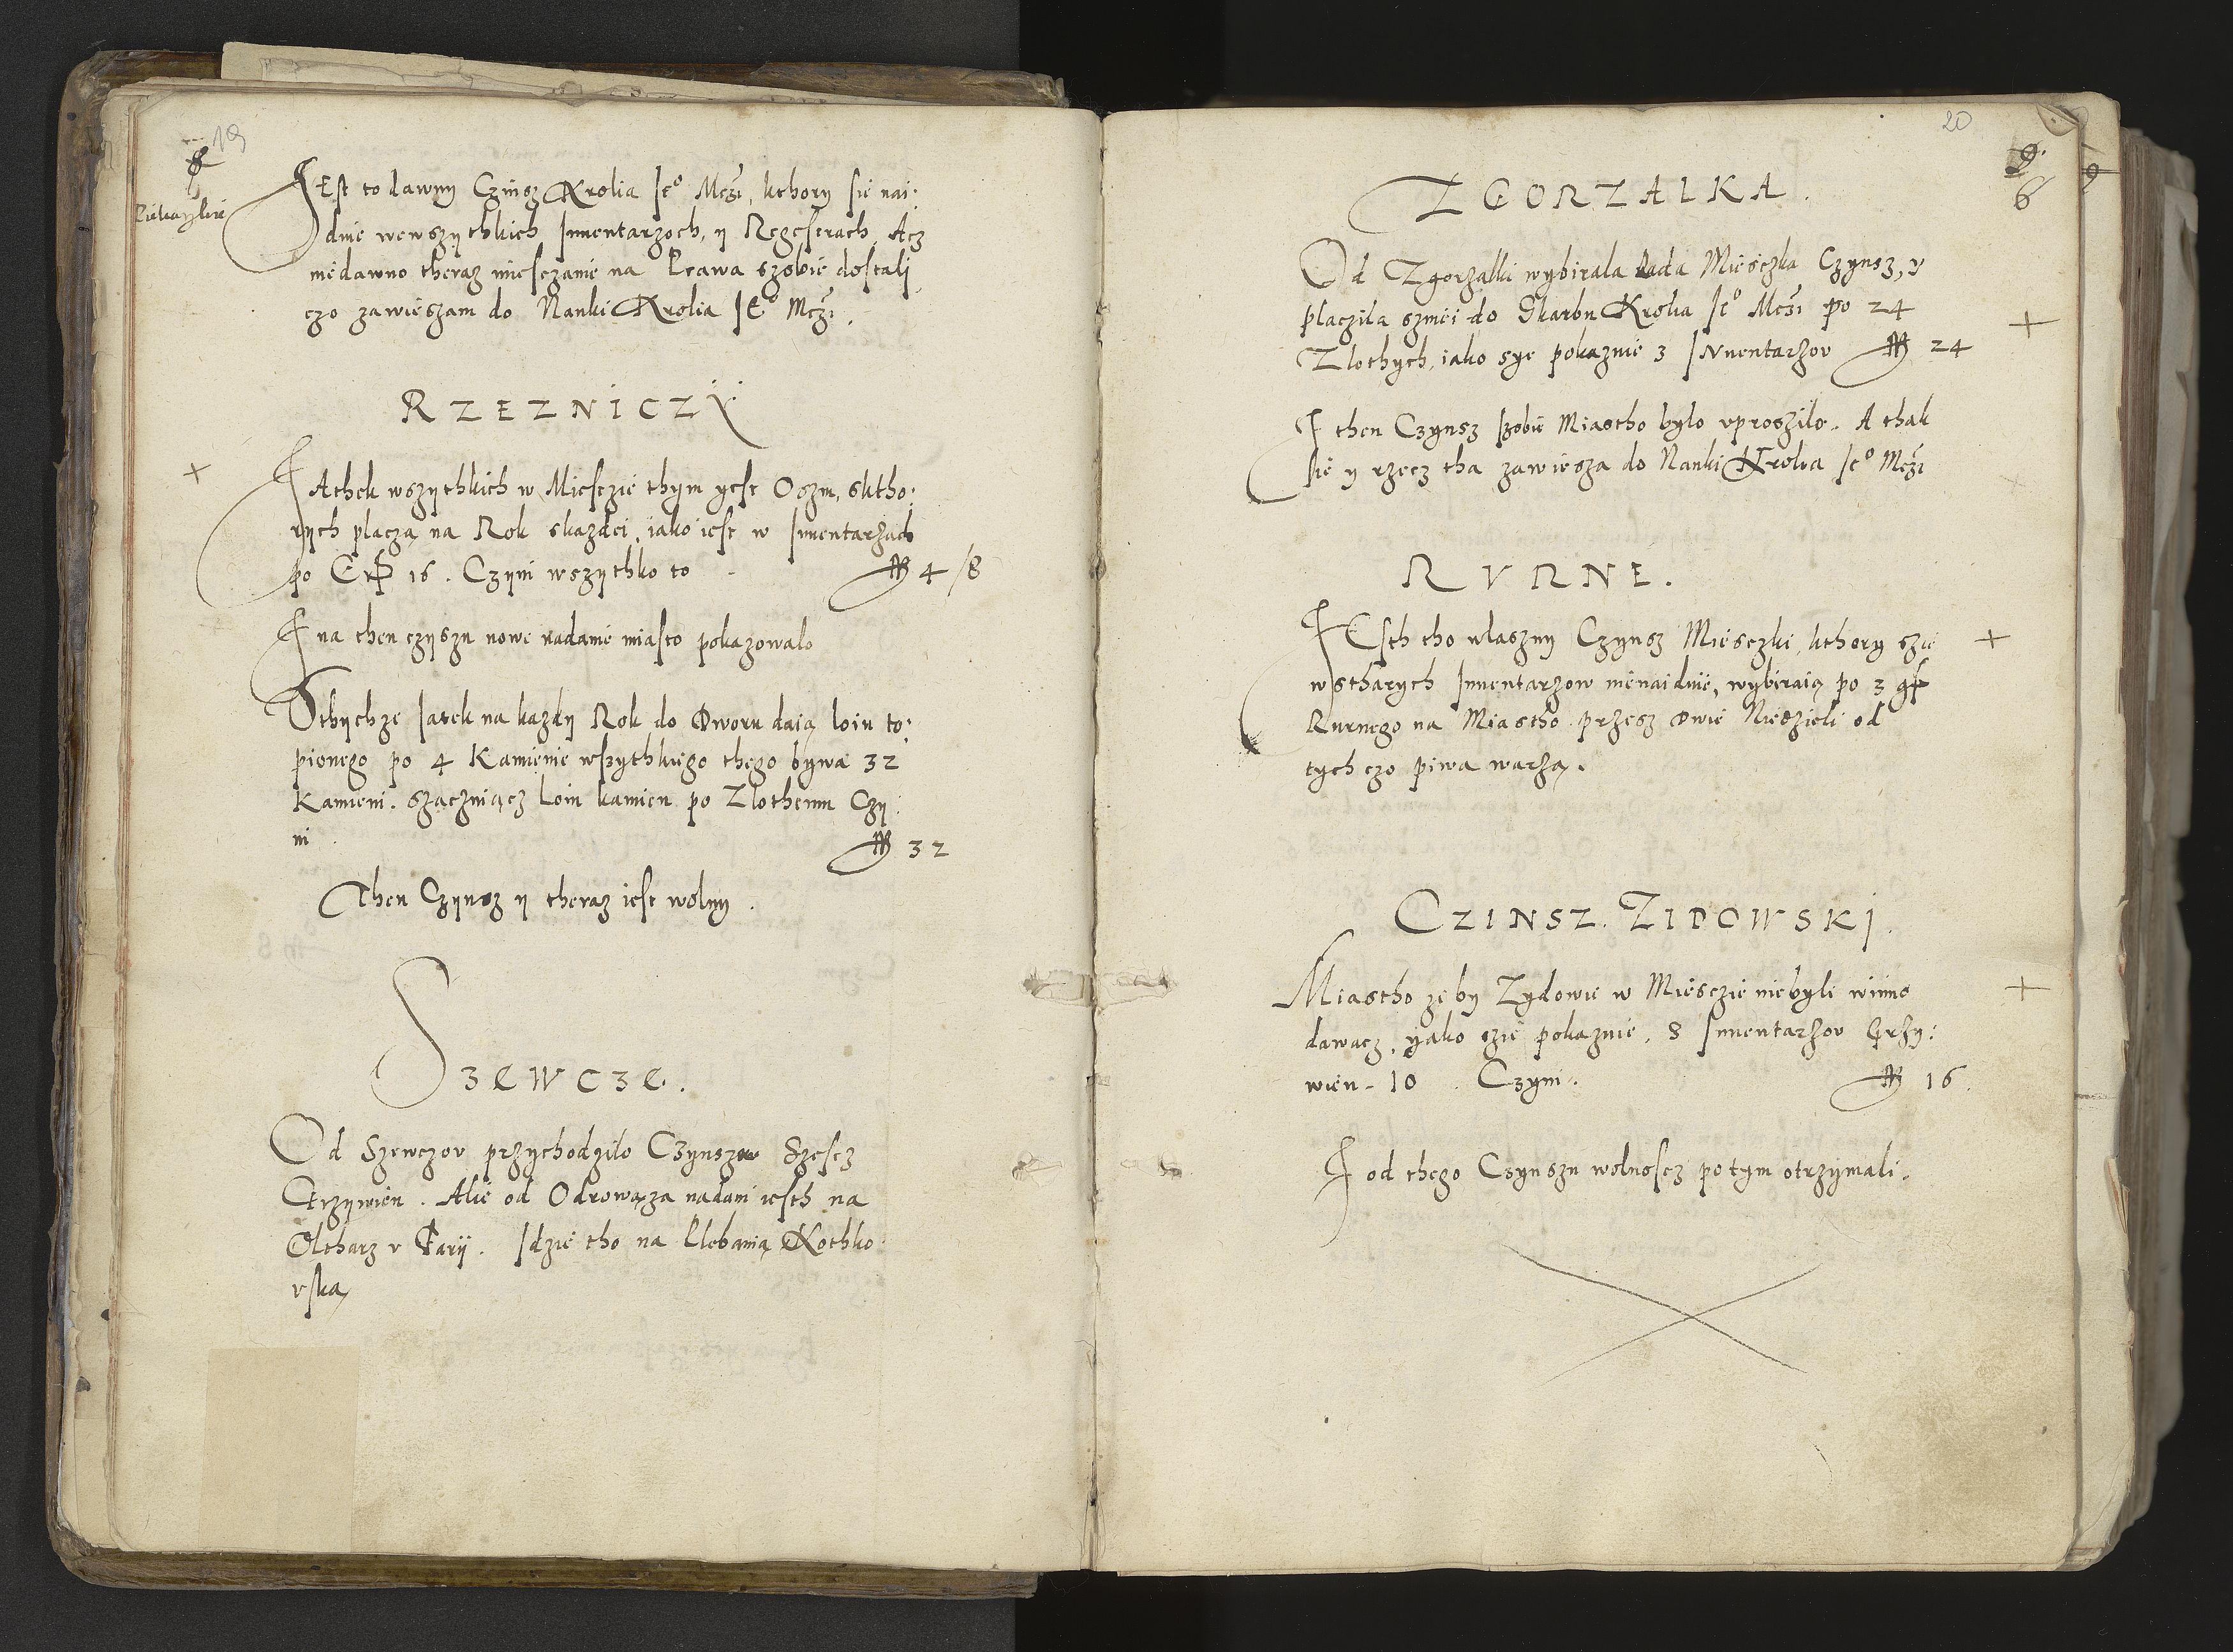 19
8
JEst to dawny Czinsz Krolia Je° Mczi, kthory sie nai:
duie wewszythkich Inuentarzoch, y Regestrach. Acz
niedawno theraz miesczanie na Prawa szobie dostali
czo zawieszam do Nauki Krolia JE° Mczi.
RZEZNICZY
+
JAthek wszythkich w Miesczie thym yest Oszm, sktho:
rych placzą na Rok skazdei, iako iest w Inuentarzach
po Gr 16. Czyni wszythko to fl 4 /8
J na then czyszn nowe nadanie miasto pokazowalo
Sthychze Jatek na kazdy Rok do Dworu daią loiu to:
pionego po 4 Kamienie wszythkiego thego bywa 32
Kamieni. szaczuiącz Loiu kamien po Zlothemu Czy:
ni fl 32
Then Czynsz y theraz iest wolny.
SZEWCZE.
Od Szewczov przychodzilo Czynszow Szescz
Grzywien. Alie od Odrowąza nadani iesth na
Oltharz v Fary. Jdzie tho na Plebanią Kothko
vską
20
9
6
ZGORZALKA.
Od Zgorzalki wybirala Rada Mieiska Czynsz, y
placzila szniei do Skarbu Krolia Je° Mczi po 24
Zlothych, iako sye pokazuie z INuentarzov fl 24
+
J then Czynsz szobie Miastho bylo vproszilo. A thak
sie y rzecz tha zawiesza do Nauki Krolia Je° Mczi
RVRNE.
JEsth tho wlaszny Czynsz Miesczki, kthory szie
+
wstharych Inuentarzow nienaiduie, wybiraią po 3 gr
Rurnego na Miastho przesz Dwie Niedzieli od
tych czo piwa warzą.
CZINSZ. ZIDOWSKI.
Miastho ze by Zydowie w Miesczie niebyli winno
+
dawacz, yako szie pokazuie, S Inuentarzov Grzy:
wien. 10. Czyni. fl 16.
J od thego Czynszu wolnoscz potym otrzymali.